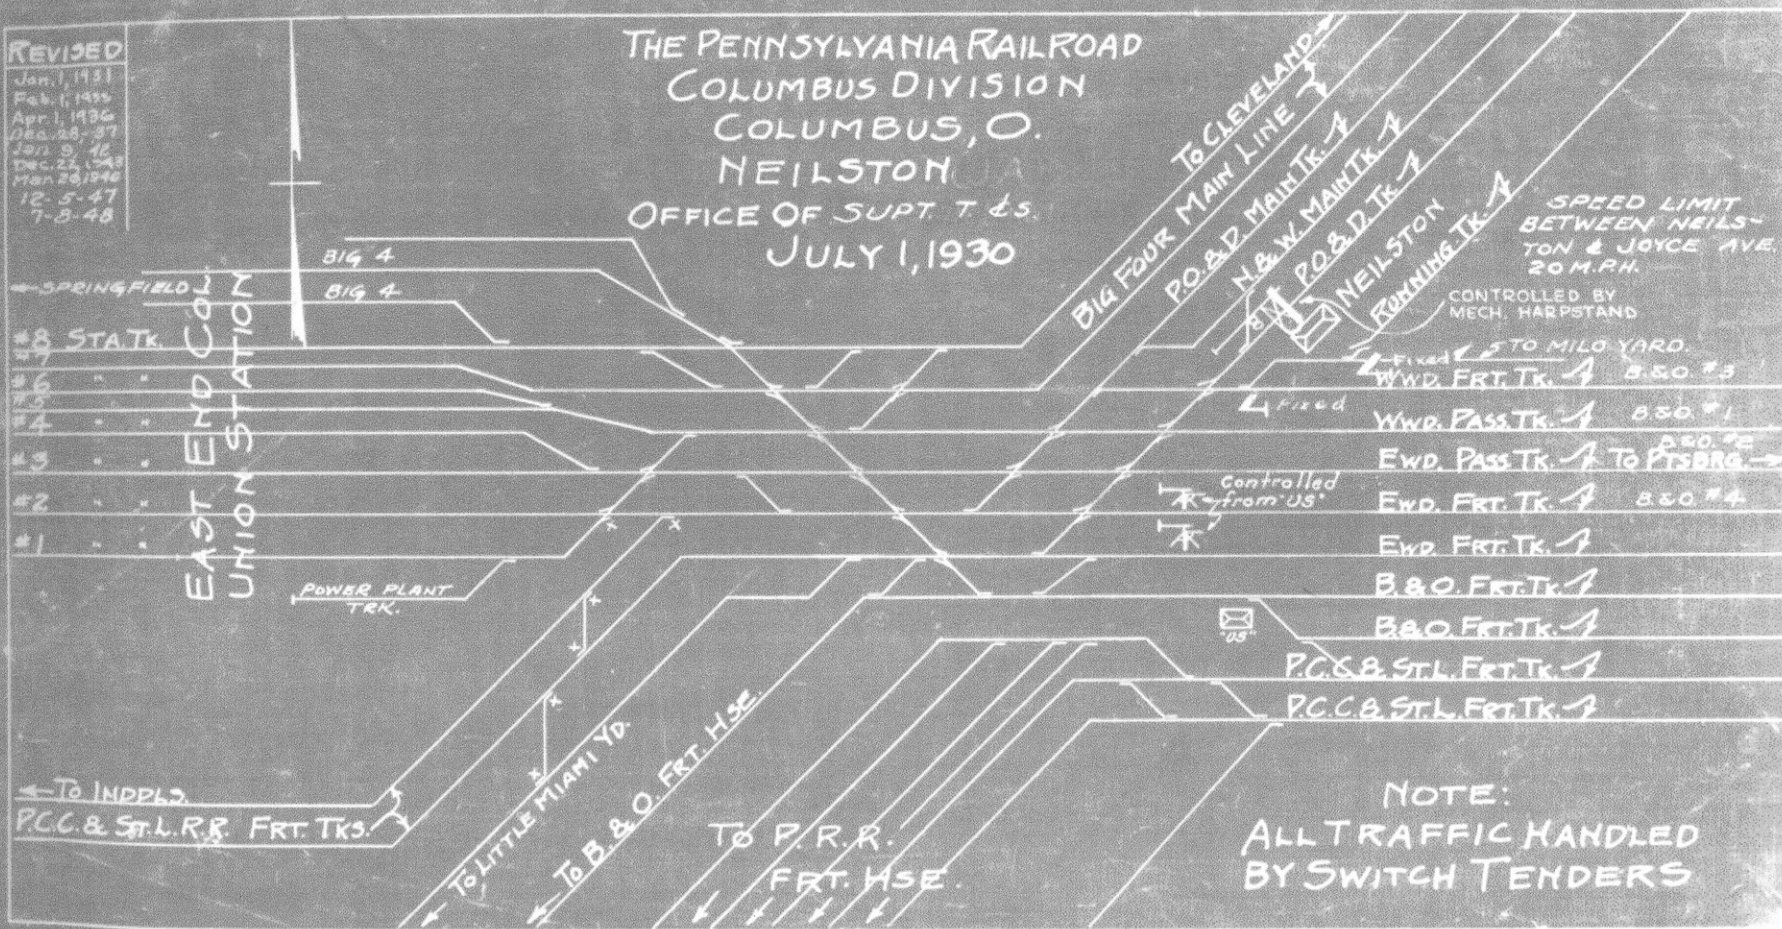 REVISED
Jan. 1, 1931
Feb. 1, 1935
Apr. 1, 1936
Dec. 28-37
Jan. 9, 42
Dec. 22, 1943
Mar. 26, 1946
12-5-47
7-8-48
THE PENNSYLVANIA RAILROAD
COLUMBUS DIVISION
COLUMBUS, O.
NEILSTON
OFFICE OF SUPT. T. & S.
JULY 1, 1930
BIG 4
SPRINGFIELD
BIG 4
#8 STA. TK.
#7
#6 " "
#5
#4
#3 " "
#2 " "
#1 " "
EAST END COL.
UNION STATION
POWER PLANT
TRK.
TO CLEVELAND
BIG FOUR MAIN LINE
P.O. & D. MAIN TK.
N. & W. MAIN TK.
P.O. & D. TK.
NEILSTON
RUNNING TK.
SPEED LIMIT
BETWEEN NEILS-
TON & JOYCE AVE.
20 M.P.H.
CONTROLLED BY
MECH. HARPSTAND
Fixed
TO MILO YARD.
WWD. FRT. TK. B.&O. #3
Fixed
WWD. PASS. TK. B.&O. #1
B.&O. #2
EWD. PASS. TK. TO PTSBRG.
Controlled
from "US"
EWD. FRT. TK. B.&O. #4
EWD. FRT. TK.
B. & O. FRT. TK.
"US"
B.&O. FRT. TK.
P.C.C. & ST. L. FRT. TK.
P.C.C. & ST. L. FRT. TK.
TO INDPLS.
P.C.C. & ST. L. R.R. FRT. TKS.
TO LITTLE MIAMI YD.
TO B. & O. FRT. HSE.
TO P. R. R.
FRT. HSE.
NOTE:
ALL TRAFFIC HANDLED
BY SWITCH TENDERS